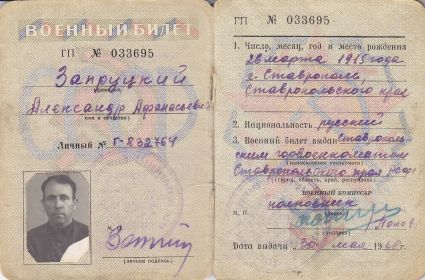 ВОЕННЫЙ БИЛЕТ
ГП № 033695
Запруцкий
(фамилия)
Александр Афанасьевич
имя и отчество)
Личный № Г-832764
М. П.
(личная подпись)
ГП № 033695
1. Число, месяц, год и место рождения
28 марта 1915 года
г. Ставрополь,
Ставропольского края
2. Национальность русский
3. Военный билет выдан Ставрополь-
ским горвоенкоматом
(наименование военкомата)
Ставропольского края РСФСР
(город, область, край, республика)
ВОЕННЫЙ КОМИССАР
полковник
М. П.
(подпись)
Попов
Дата выдачи „30" мая 1968 г.